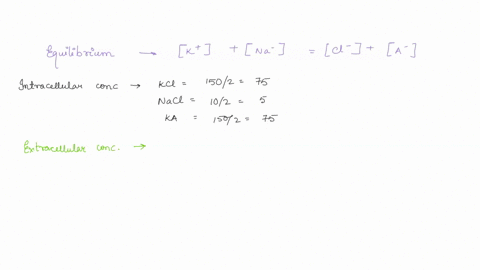 Equilibrium → [K⁺] + [Na⁻] = [Cl⁻] + [A⁻]
Intracellular conc → KCl = 150/2 = 75
NaCl = 10/2 = 5
KA = 150/2 = 75
Extracellular conc. →